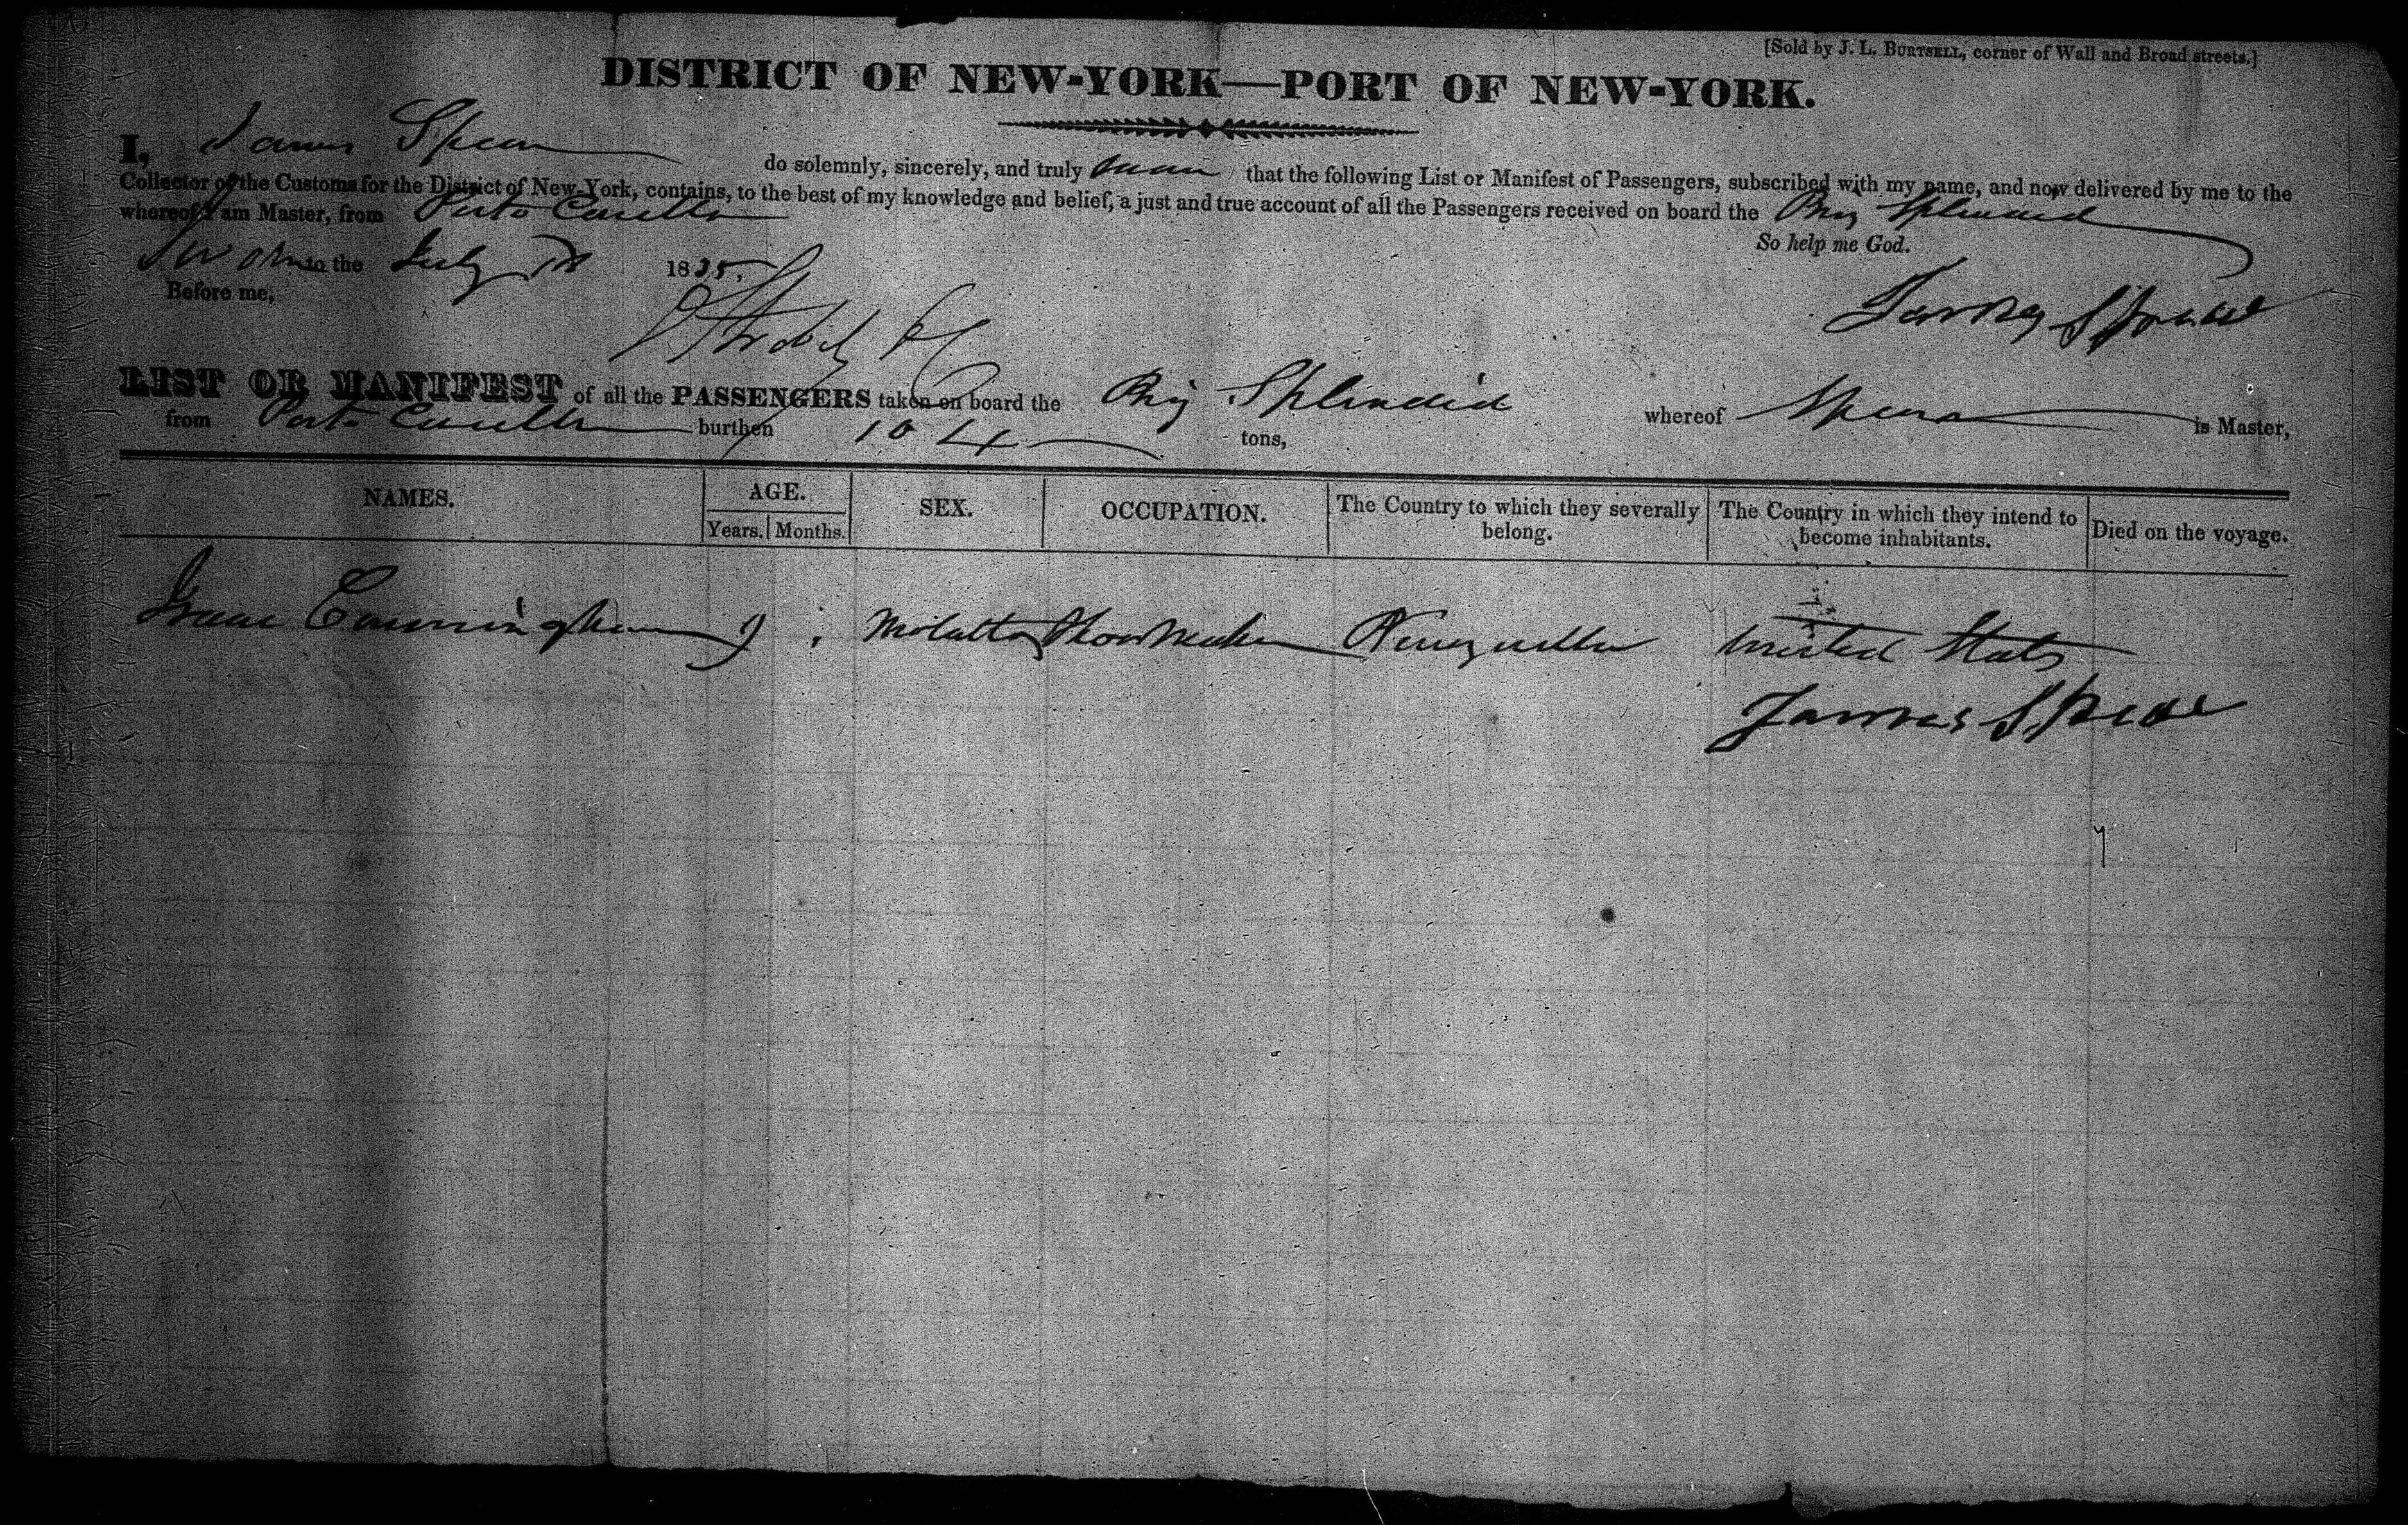 [Sold by J. L. BURTSELL, corner of Wall and Broad streets.]
DISTRICT OF NEW-YORK—PORT OF NEW-YORK.
I, James Spear do solemnly, sincerely, and truly swear that the following List or Manifest of Passengers, subscribed with my name, and now delivered by me to the
Collector of the Customs for the District of New-York, contains, to the best of my knowledge and belief, a just and true account of all the Passengers received on board the Brig Splendid
whereof I am Master, from Porto Cavello
So help me God.
Sworn to the July 1835,
Before me,
James Spear
LIST OR MANIFEST of all the PASSENGERS taken on board the Brig Splendid whereof Spear is Master,
from Porto Cavello burthen 104 tons,
NAMES. AGE. SEX. OCCUPATION. The Country to which they severally belong. The Country in which they intend to become inhabitants. Died on the voyage.
Years. Months.
Isaac Cunningham Molatto Shoemaker Venezuella United States
James Spear